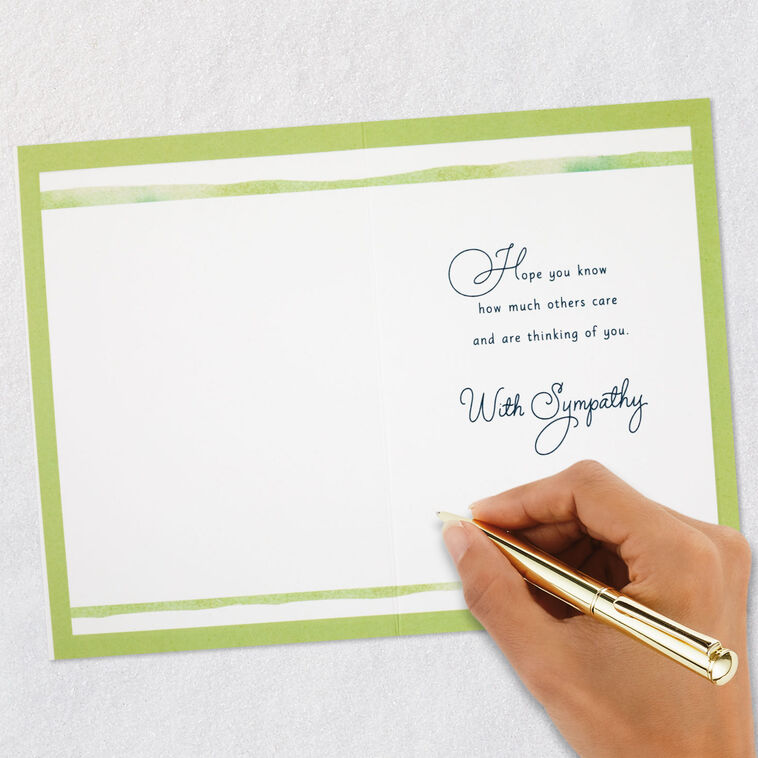 Hope you know
how much others care
and are thinking of you.
With Sympathy